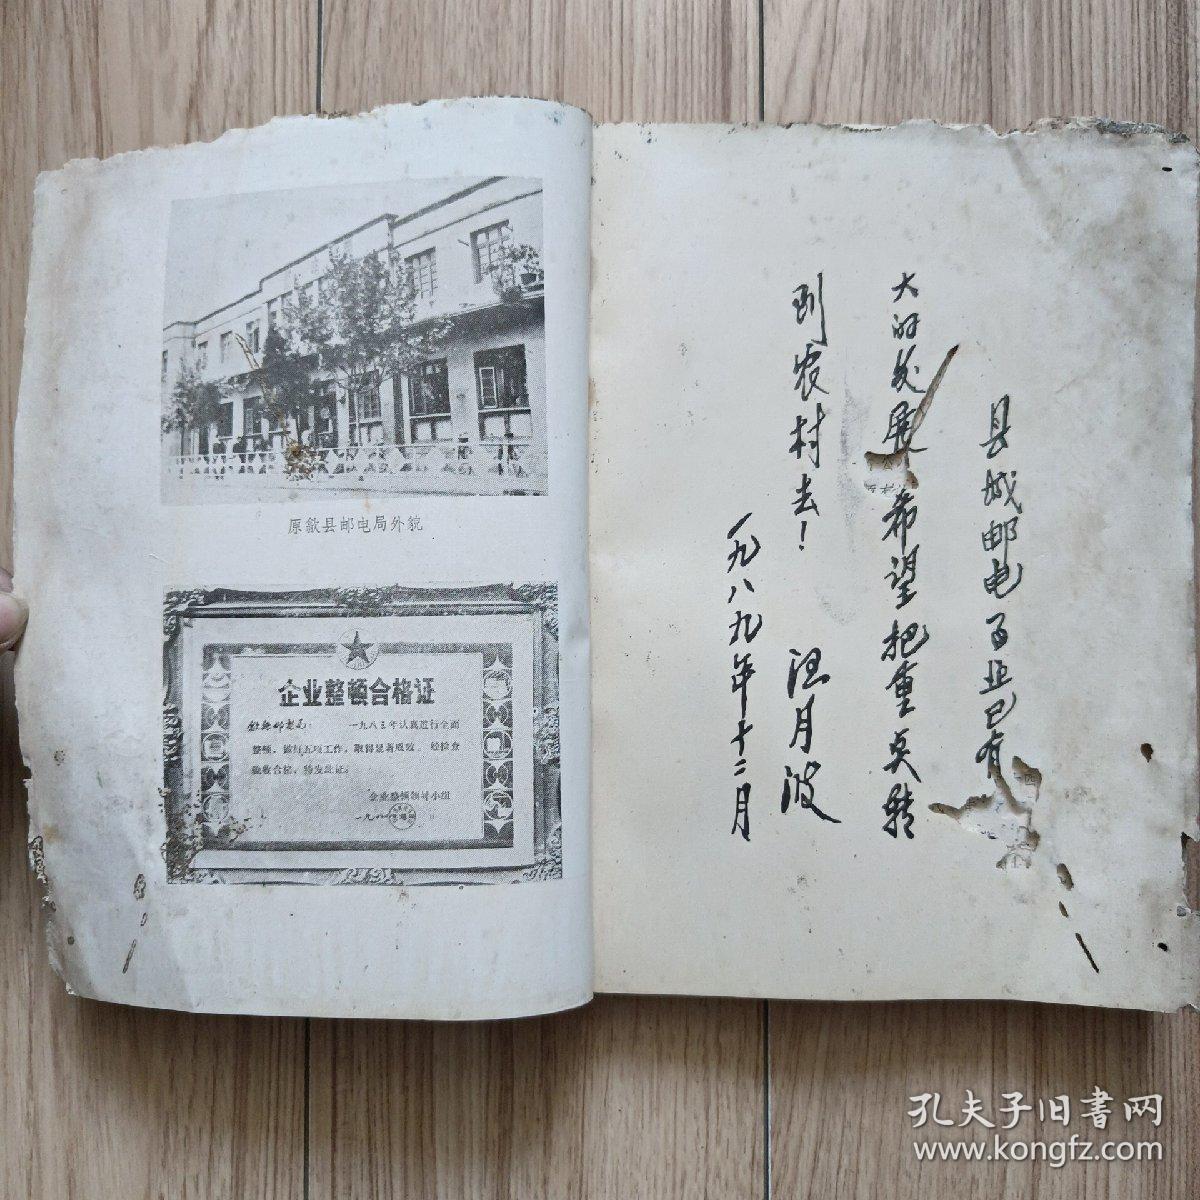 原歙县邮电局外貌
企业整顿合格证
歙县邮电局：　一九八三年认真进行全面
整顿，做好五项工作，取得显著成效。经检查
验收合格，特发此证。
企业整顿领导小组
县城邮电事业已有
大的发展
希望把重点转
到农村去！
汪月波
一九八九年十二月
孔夫子旧书网
www.kongfz.com